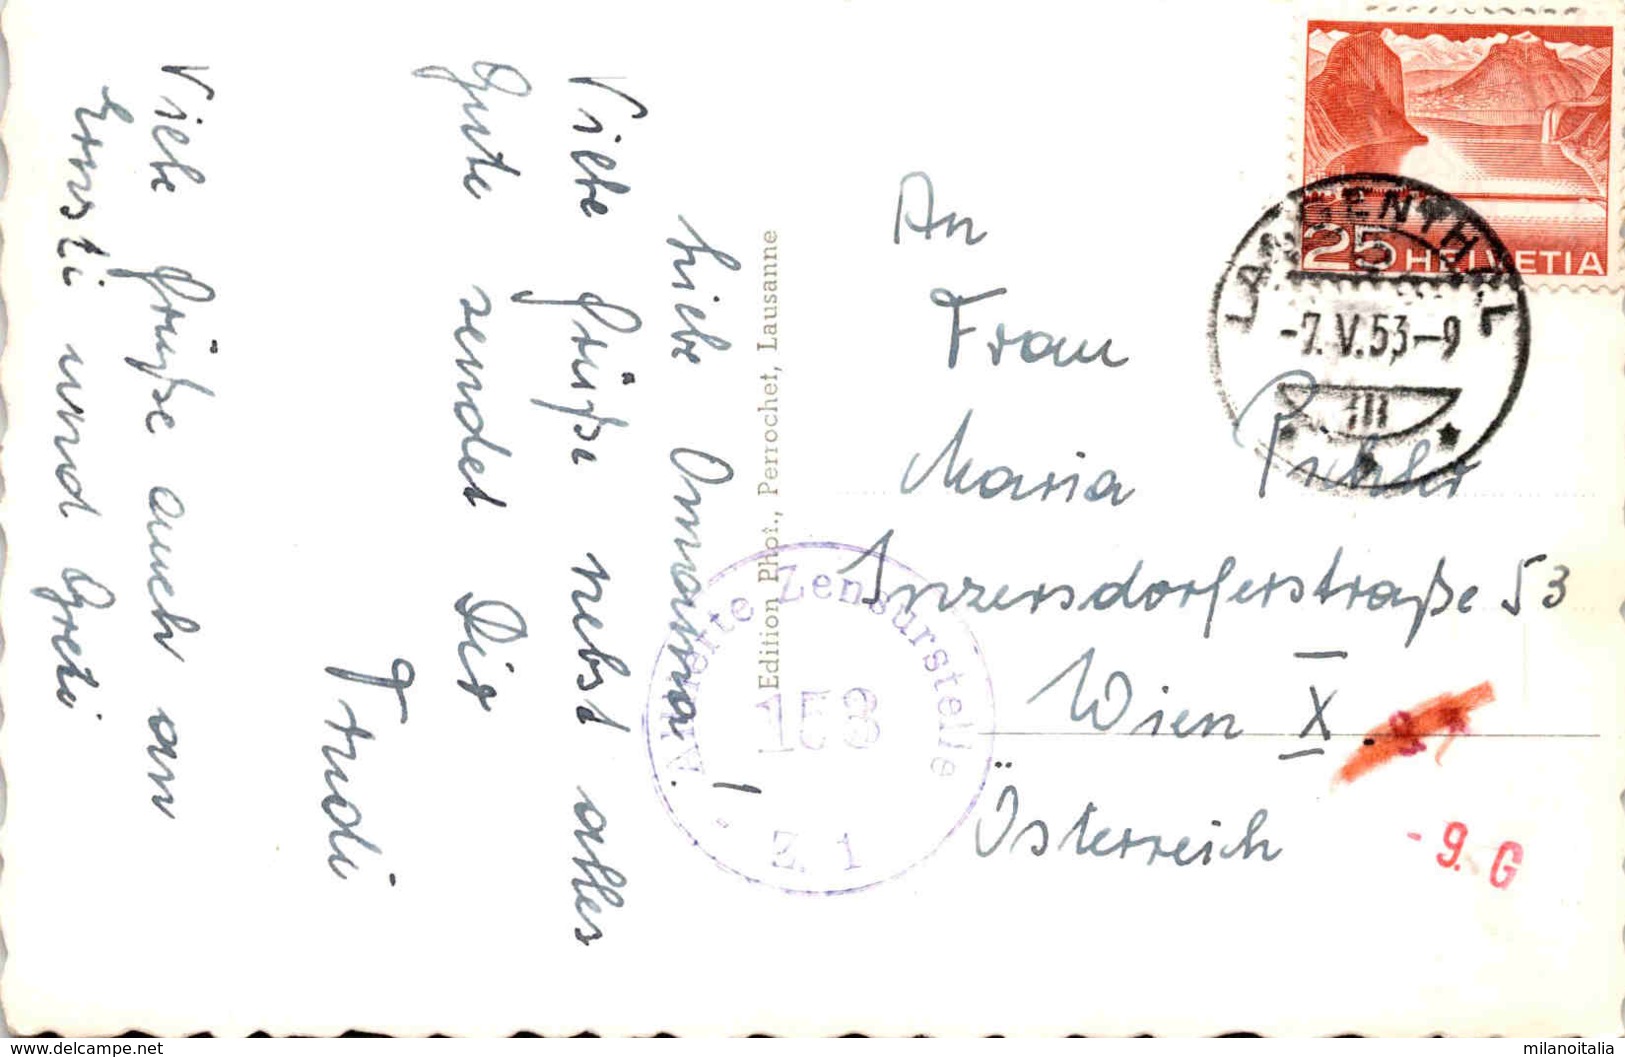 Liebe Omama!
Viele Grüße nebst alles
Gute sendet Dir
Trudi
Viele Grüße auch an
Ernsti und Greti
Edition Phot., Perrochet, Lausanne
An
Frau
Maria Pichler
Inzersdorferstraße 53
Wien X.
Österreich
25 HELVETIA
LANGENTHAL
-7.V.53-9
III
Alliierte Zensurstelle
153
Z. 1
- 9. G
www.delcampe.net
milanoitalia